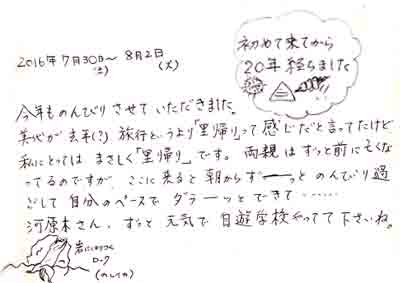 2016年7月30日〜8月2日
(土)
(火)
初めて来てから
20年経ちました
今年ものんびりさせていただきました。
美代が去年(?)旅行というより「里帰り」って感じだと言ってたけど
私にとっては まさしく「里帰り」です。両親はずっと前に亡くなっ
てるのですが、ここに来ると朝からずーーっとのんびり過
ごして自分のペースでダラーーッとできて……
河原木さん、ずっと元気で自遊学校やってて下さいね。
岩にしがみつく
ロック